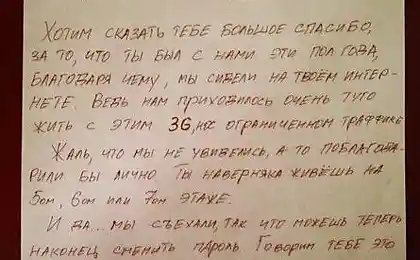 Хотим сказать тебе большое спасибо,
за то, что ты был с нами эти пол года,
благодаря чему, мы сидели на твоём интер-
нете. Ведь нам приходилось очень туго
жить с этим 3G, на ограниченном траффике
Жаль, что мы не увиделись, а то поблагода-
рили бы лично. Ты наверняка живёшь на
5ом, 6ом или 7ом этаже.
И да... мы съехали, так что можешь теперь
наконец сменить пароль. Говорим тебе это